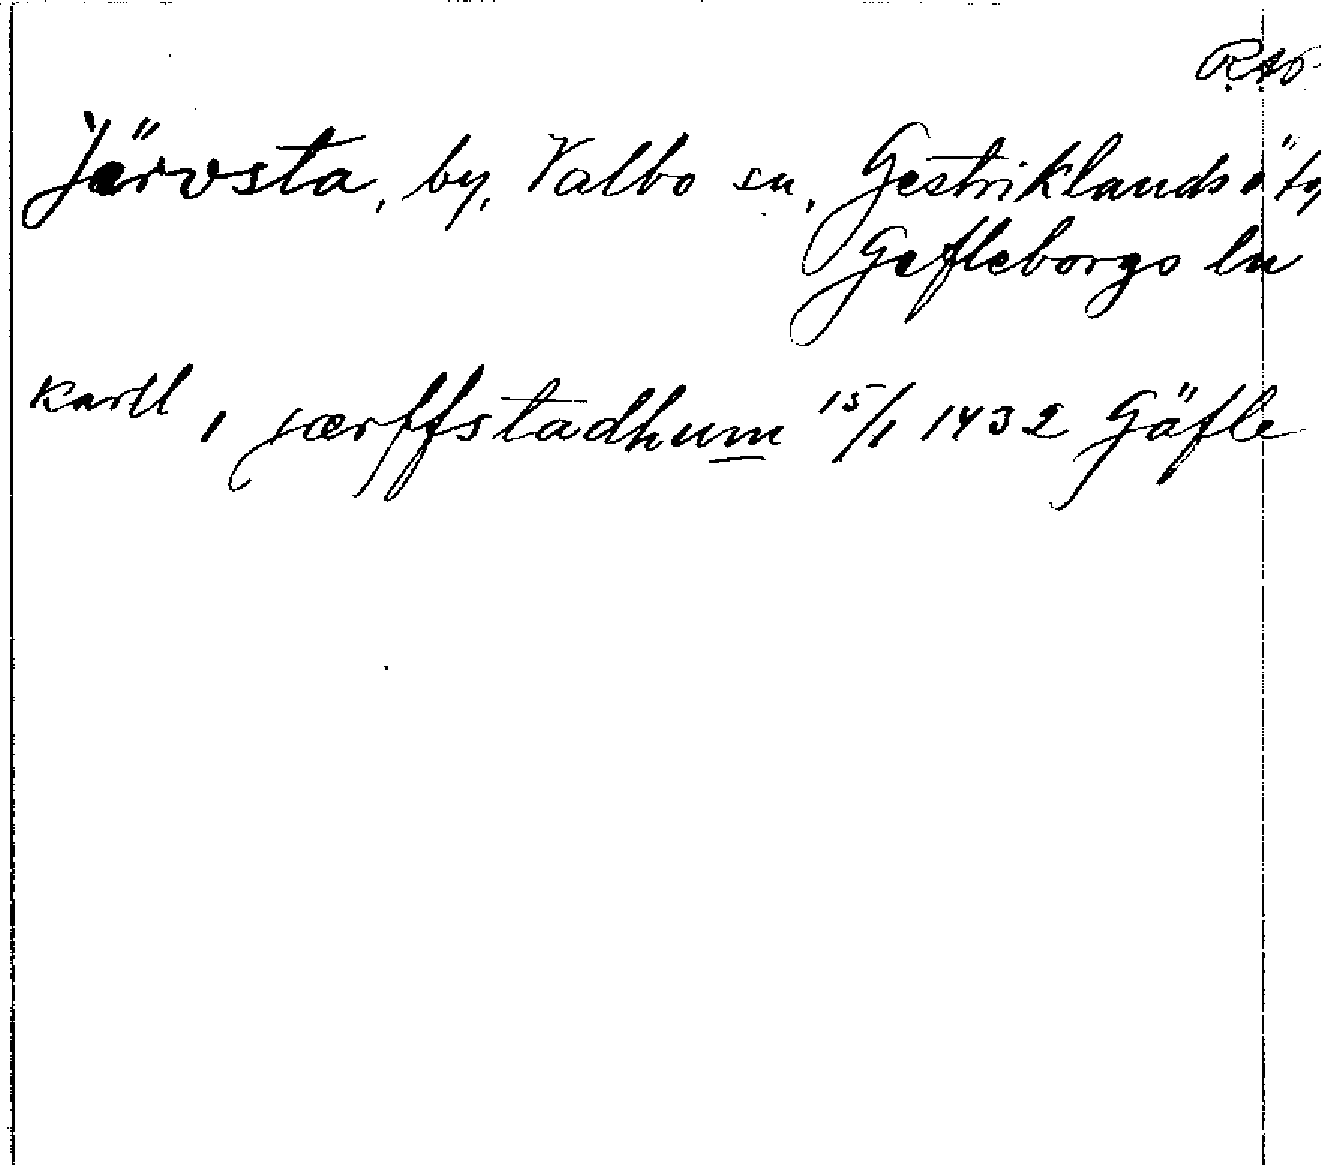 R.A.P.
Järvsta, by, Valbo sn, Gestriklands ö tg
Gefleborgs ln
kartl, ı særffstadhum 15/1 1432 Gäfle